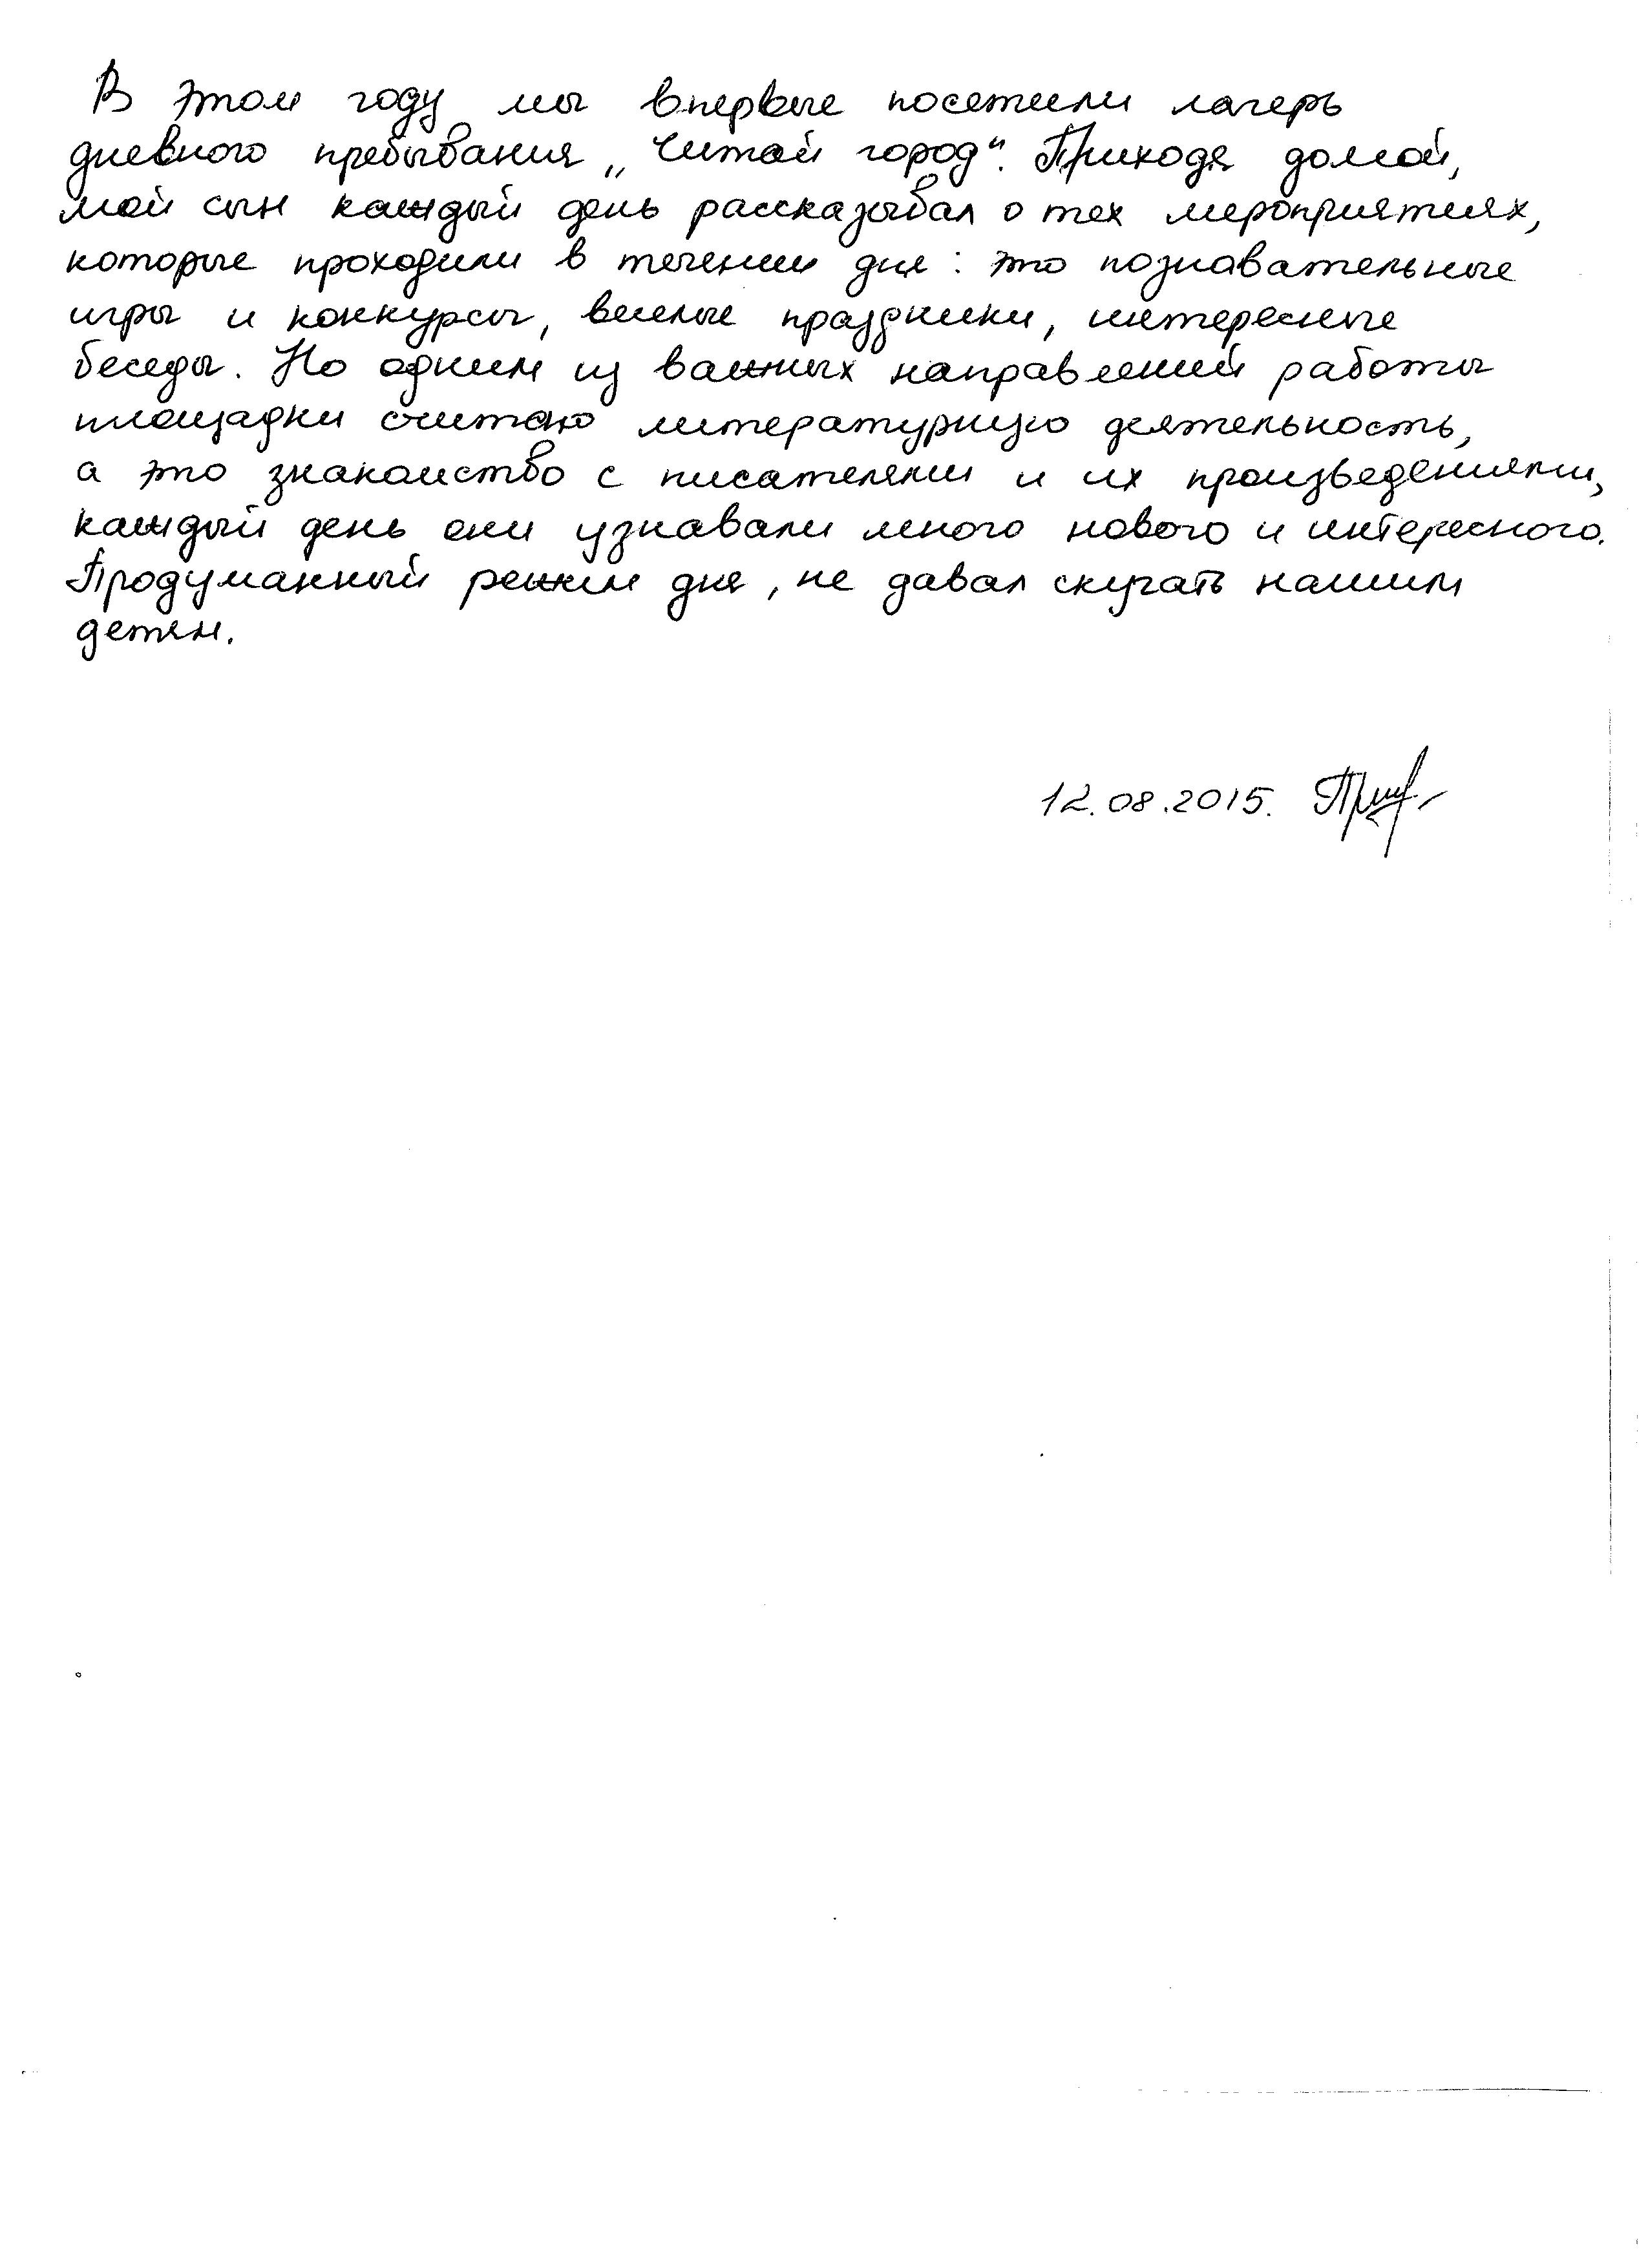 В этом году мы впервые посетили лагерь
дневного пребывания „Читай город“. Приходя домой,
мой сын каждый день рассказывал о тех мероприятиях,
которые проходили в течении дня: это познавательные
игры и конкурсы, веселые праздники, интересные
беседы. Но одним из важных направлений работы
площадки считаю литературную деятельность,
а это знакомство с писателями и их произведениями,
каждый день они узнавали много нового и интересного.
Продуманный режим дня, не давал скучать нашим
детям.
12.08.2015.